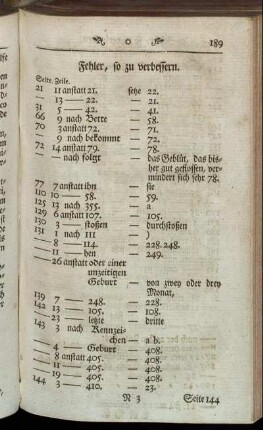 o 189
Fehler, so zu verbessern.
Seite. Zeile.
21 11 anstatt 21. setze 22.
— 13 — 22. — 21.
31 5 — 42. — 41.
66 9 nach Bette — 58.
70 3 anstatt 72. — 71.
— 9 nach bekommt — 72.
72 14 anstatt 79. — 78.
— — nach folgt — das Geblüt, das bis-
her gut geflossen, ver-
mindert sich sehr 78.
77 7 anstatt ihn — sie
110 10 — 58. — 59.
125 13 nach 355. — a
129 6 anstatt 107. — 105.
— 3 — stoßen — durchstoßen
131 1 nach III — )
— 8 — 114. — 228. 248.
— 11 — hen — 249.
— 26 anstatt oder einer
unzeitigen
Geburt — von zwey oder drey
Monat,
139 7 — 248. — 228.
142 13 — 105. — 108.
— 23 — letzte — dritte
143 3 nach Kennzei-
chen — a b.
— 4 — Geburt — 408.
— 8 anstatt 405. — 408.
— 11 — 405. — 408.
— 19 — 405. — 408.
144 3 — 410. — 23.
N 3 Seite 144